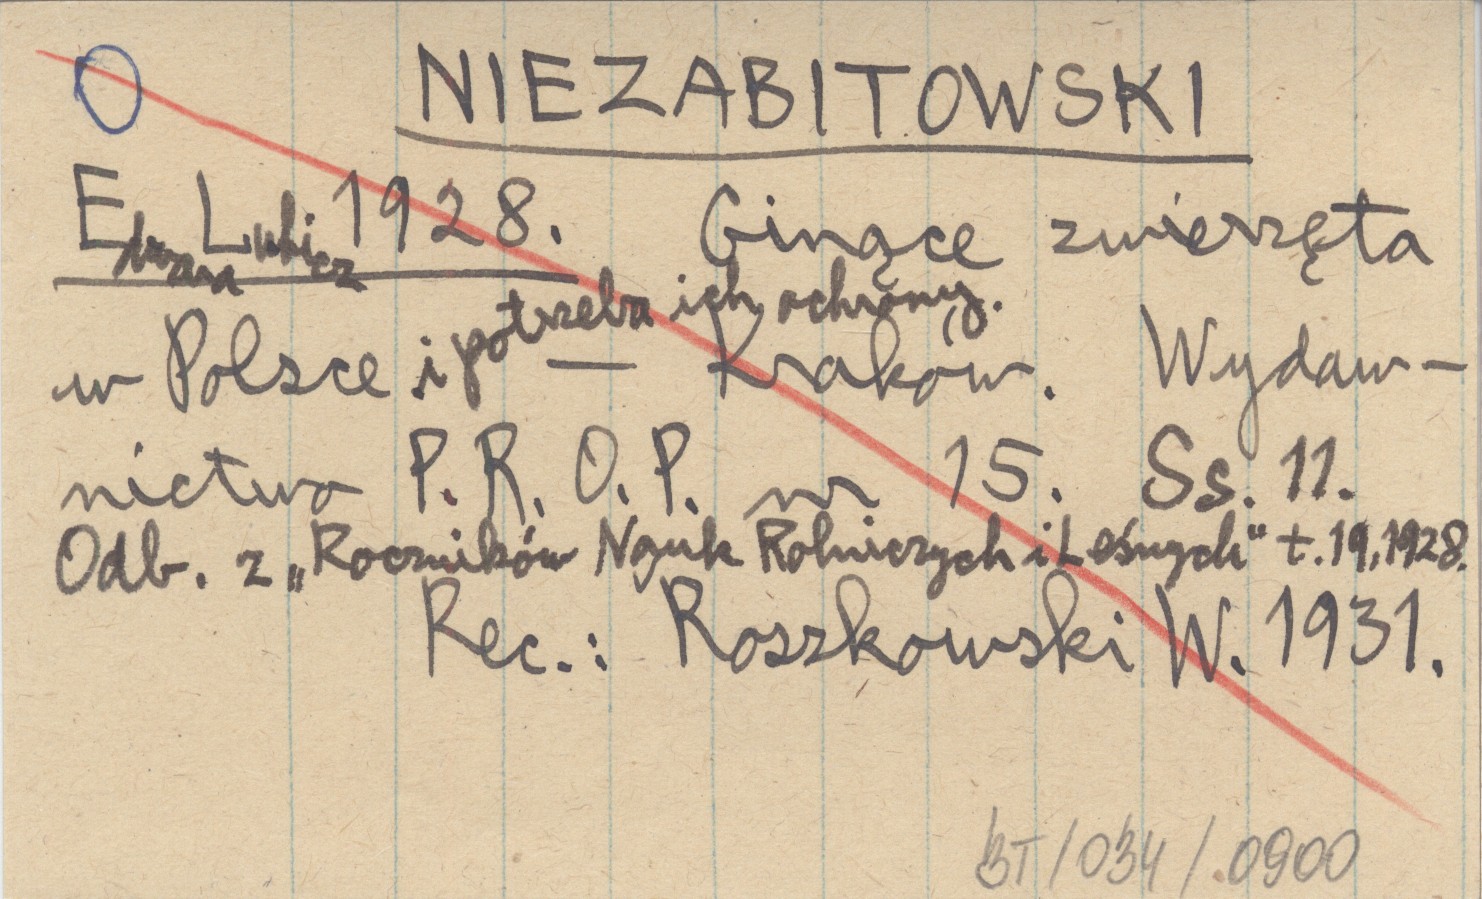 O NIEZABITOWSKI
Edward Lubicz 1928. Ginące zwierzęta
w Polsce i potrzeba ich ochrony. — Kraków. Wydaw-
nictwo P. R. O. P. nr 15. Ss. 11.
Odb. z „Roczników Nauk Rolniczych i Leśnych" t. 19, 1928.
Rec.: Roszkowski W. 1931.
BT/034/0900